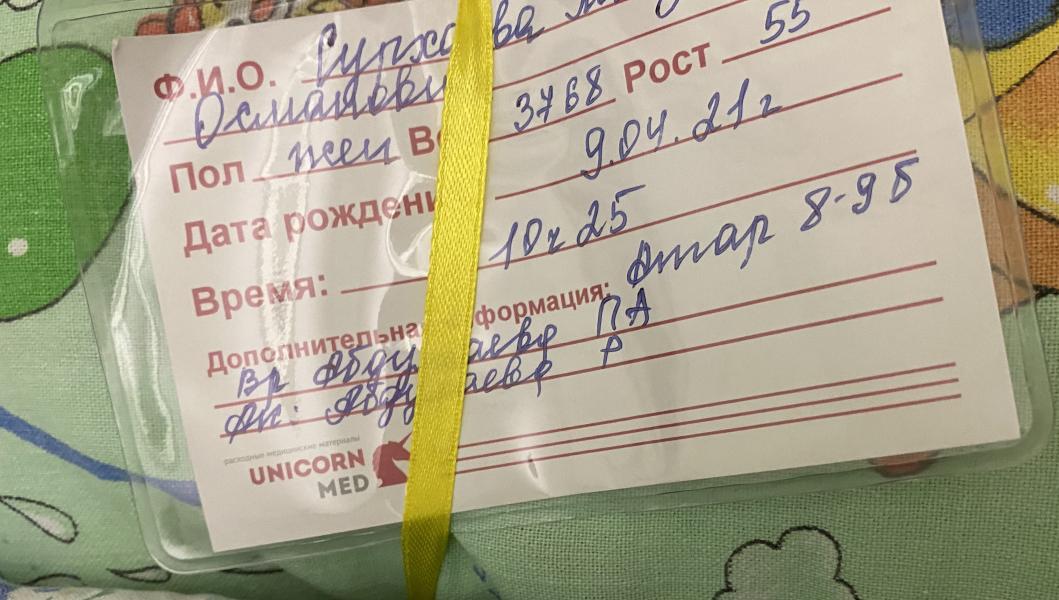 Ф.И.О.
Османовн
Пол жен Ве 3768 Рост 55
Дата рождени 9.04.21г
Время: 10ч 25
Дополнительна формация: Апгар 8-9 б
Вр Абду аева ПА
Ак: Абду аева Р
расходные медицинские материалы
UNICORN
MED